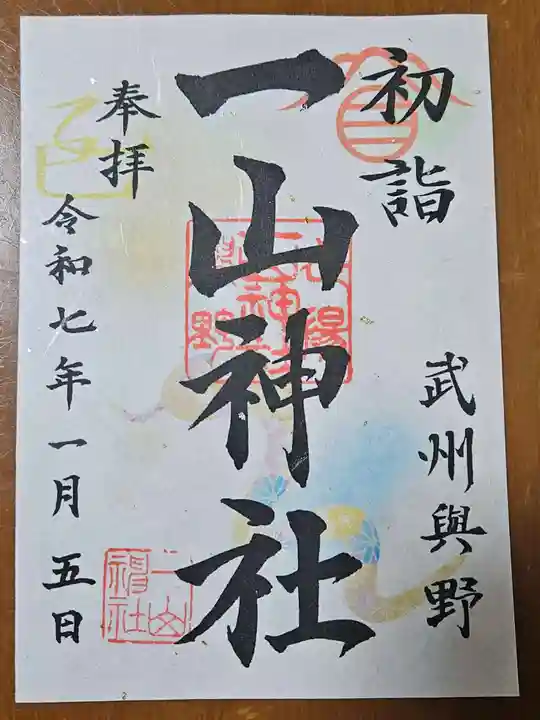 初詣
武州與野
一山神社
奉拝
令和七年一月五日
一山
神社